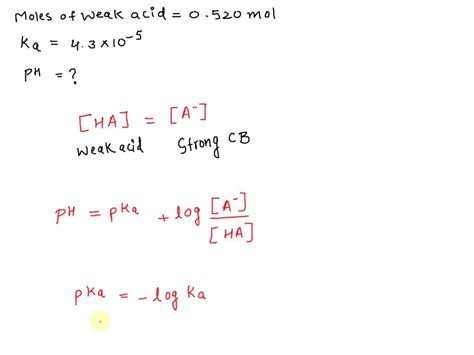 Moles of weak acid = 0.520 mol
Ka = 4.3×10⁻⁵
PH = ?
[HA] = [A⁻]
weak acid Strong CB
PH = PKa + log [A⁻]
[HA]
PKa = - log Ka